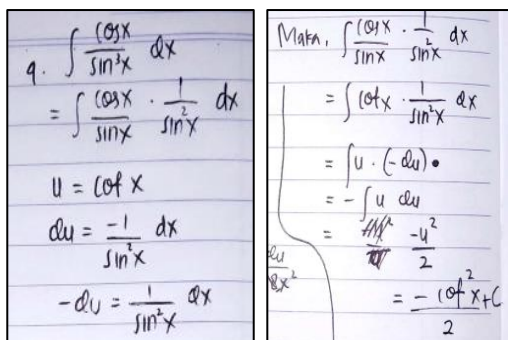 9. ∫ cosx/sin³x dx
= ∫ cosx/sinx · 1/sin²x dx
u = cot x
du = -1/sin²x dx
-du = 1/sin²x dx
Maka, ∫ cosx/sinx · 1/sin²x dx
= ∫ cotx · 1/sin²x dx
= ∫ u · (-du)
= - ∫ u du
= -u²/2
= -cot²x/2 + C